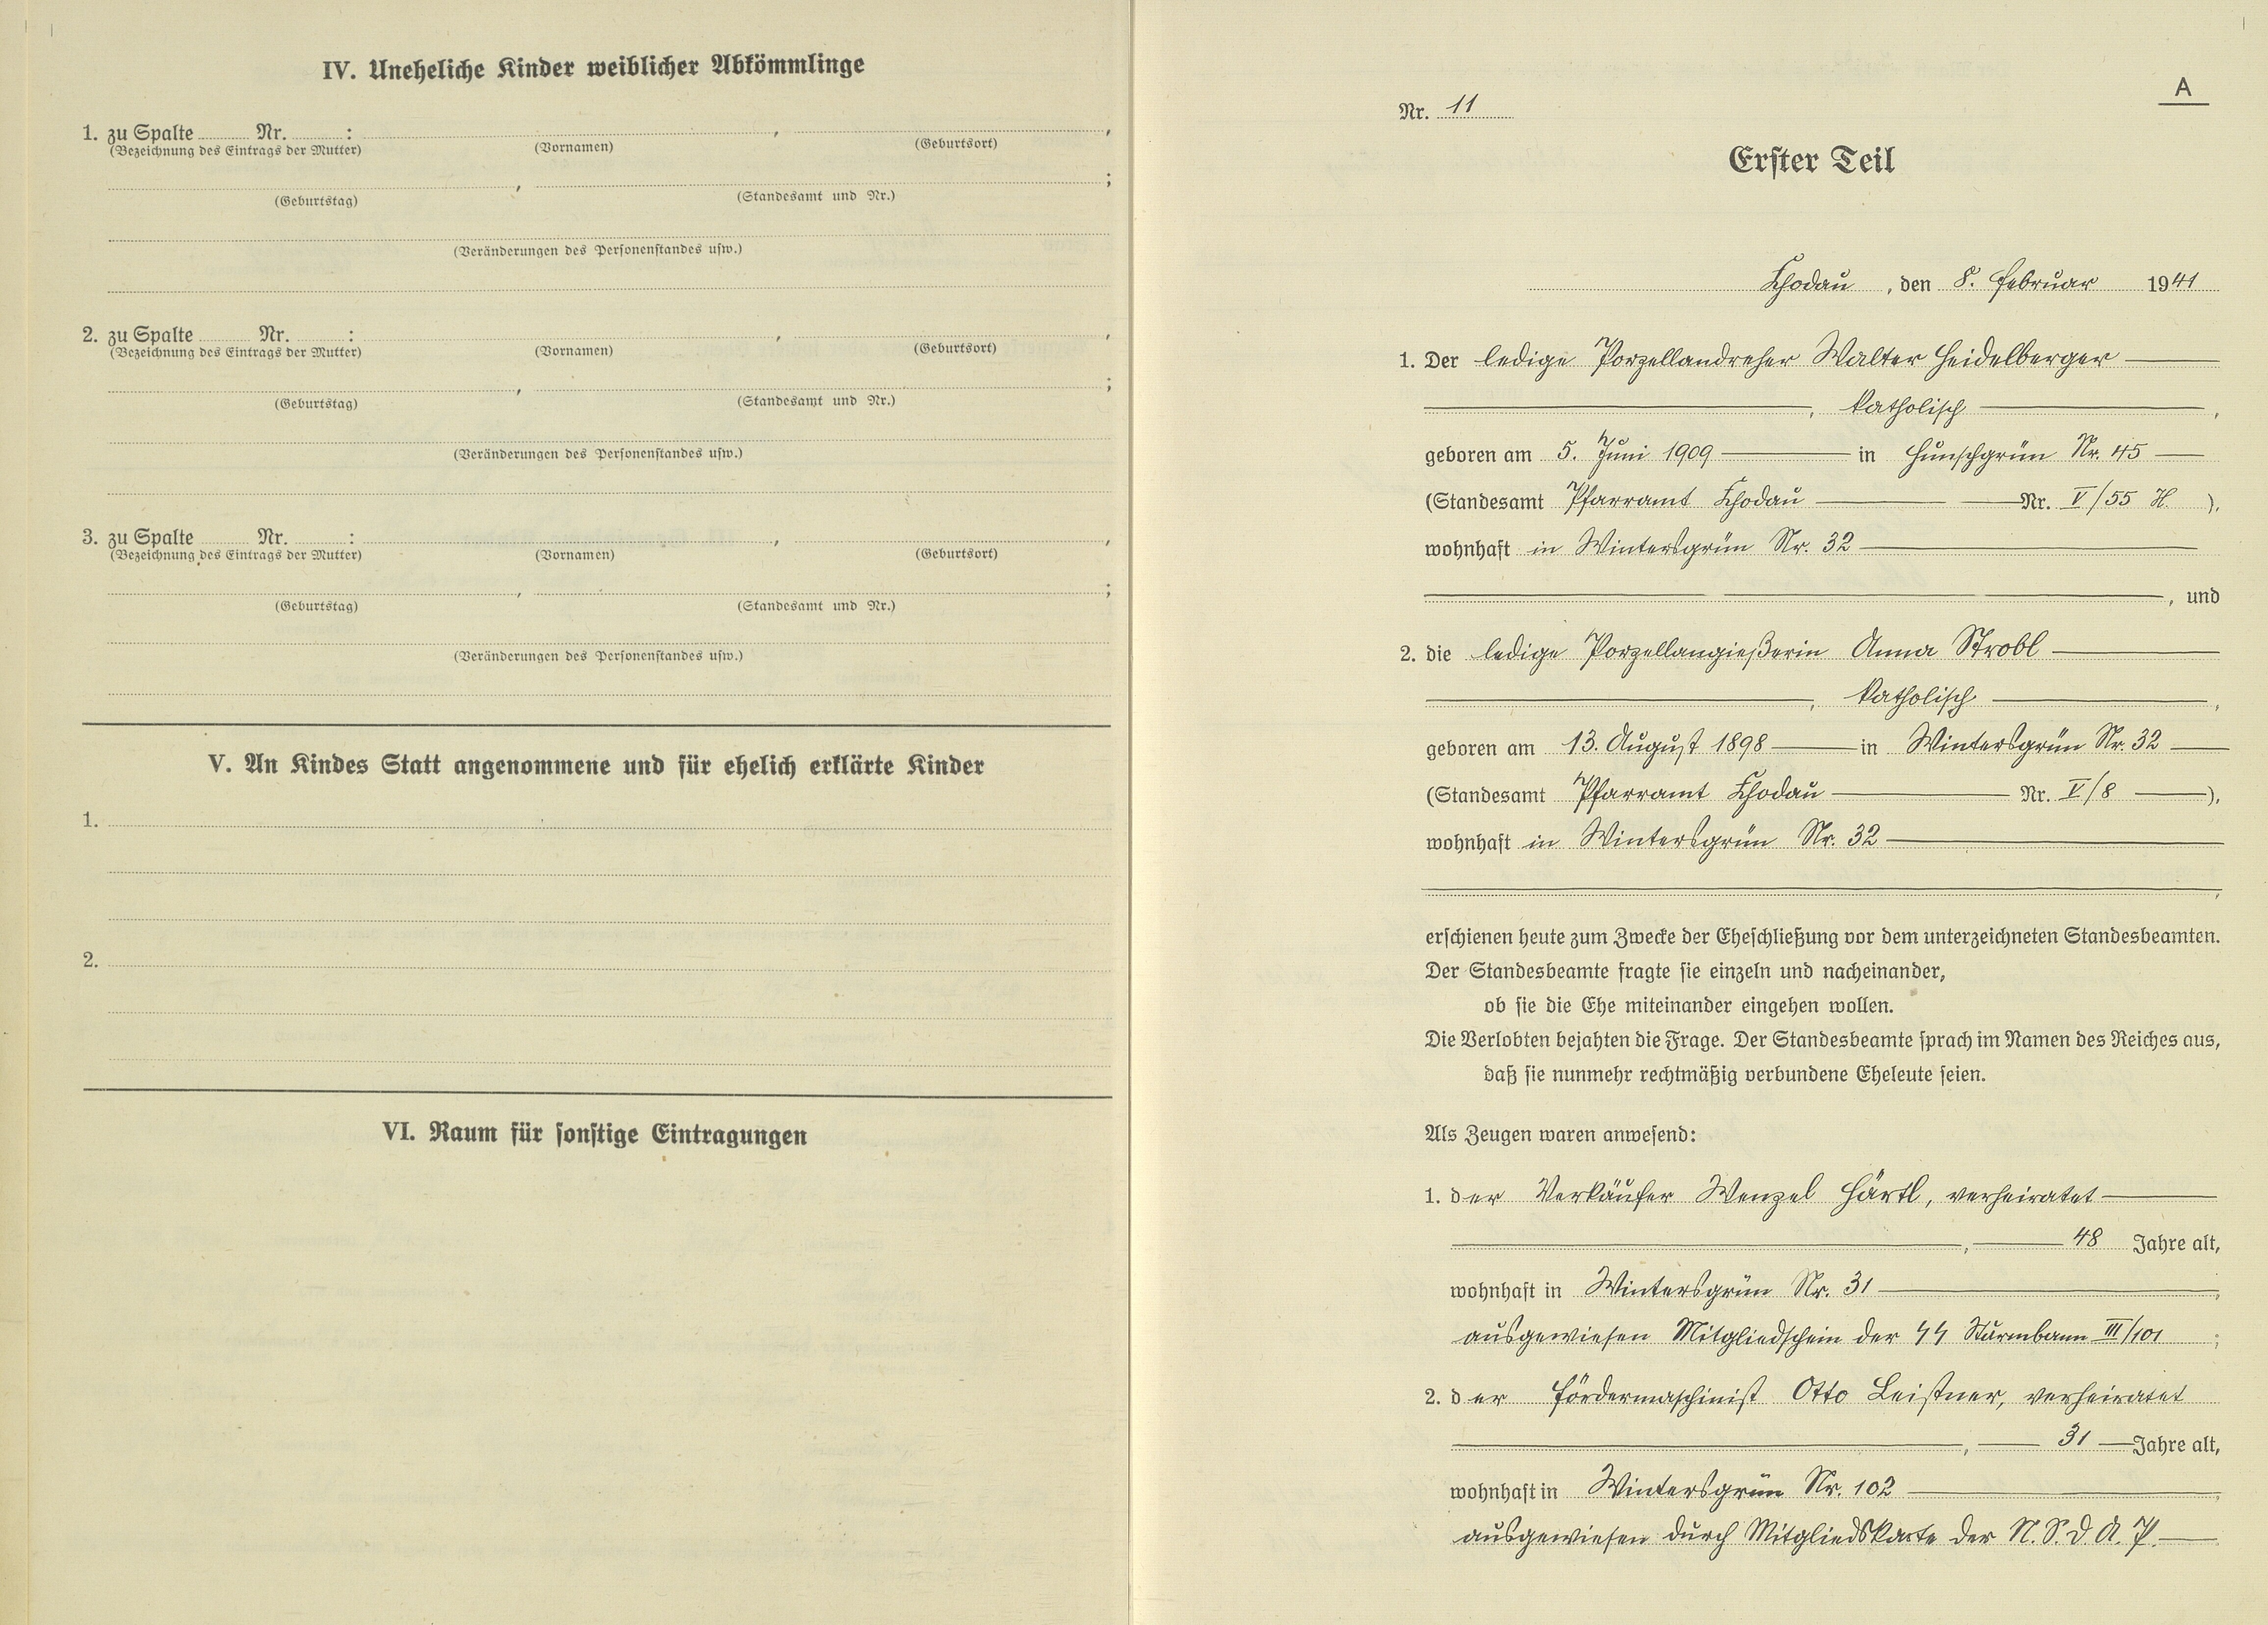 IV. Uneheliche Kinder weiblicher Abkömmlinge
1. zu Spalte ........ Nr. ........ : ........ , ........ ,
(Bezeichnung des Eintrags der Mutter) (Vornamen) (Geburtsort)
........ , ........ ;
(Geburtstag) (Standesamt und Nr.)
(Veränderungen des Personenstandes usw.)
2. zu Spalte ........ Nr. ........ : ........ , ........ ,
(Bezeichnung des Eintrags der Mutter) (Vornamen) (Geburtsort)
........ , ........ ;
(Geburtstag) (Standesamt und Nr.)
(Veränderungen des Personenstandes usw.)
3. zu Spalte ........ Nr. ........ : ........ , ........ ,
(Bezeichnung des Eintrags der Mutter) (Vornamen) (Geburtsort)
........ , ........ ;
(Geburtstag) (Standesamt und Nr.)
(Veränderungen des Personenstandes usw.)
V. An Kindes Statt angenommene und für ehelich erklärte Kinder
1.
2.
VI. Raum für sonstige Eintragungen
A
Nr. 11
Erster Teil
Chodau, den 8. Februar 1941
1. Der ledige Porzellandreher Walter Heidelberger
, katholisch ,
geboren am 5. Juni 1909 in Hunschgrün Nr. 45
(Standesamt Pfarramt Chodau Nr. V/55 H. ),
wohnhaft in Wintersgrün Nr. 32
, und
2. die ledige Porzellangießerin Anna Strobl
, katholisch ,
geboren am 13. August 1898 in Wintersgrün Nr. 32
(Standesamt Pfarramt Chodau Nr. V/8 ),
wohnhaft in Wintersgrün Nr. 32
,
erschienen heute zum Zwecke der Eheschließung vor dem unterzeichneten Standesbeamten.
Der Standesbeamte fragte sie einzeln und nacheinander,
ob sie die Ehe miteinander eingehen wollen.
Die Verlobten bejahten die Frage. Der Standesbeamte sprach im Namen des Reiches aus,
daß sie nunmehr rechtmäßig verbundene Eheleute seien.
Als Zeugen waren anwesend:
1. der Verkäufer Wenzel Härtl, verheiratet
, 48 Jahre alt,
wohnhaft in Wintersgrün Nr. 31 ,
ausgewiesen Mitgliedschein der SS Sturmbann III/101 ;
2. der Fördermaschinist Otto Leistner, verheiratet
, 31 Jahre alt,
wohnhaft in Wintersgrün Nr. 102 ,
ausgewiesen durch Mitgliedskarte der N.S.D.A.P.